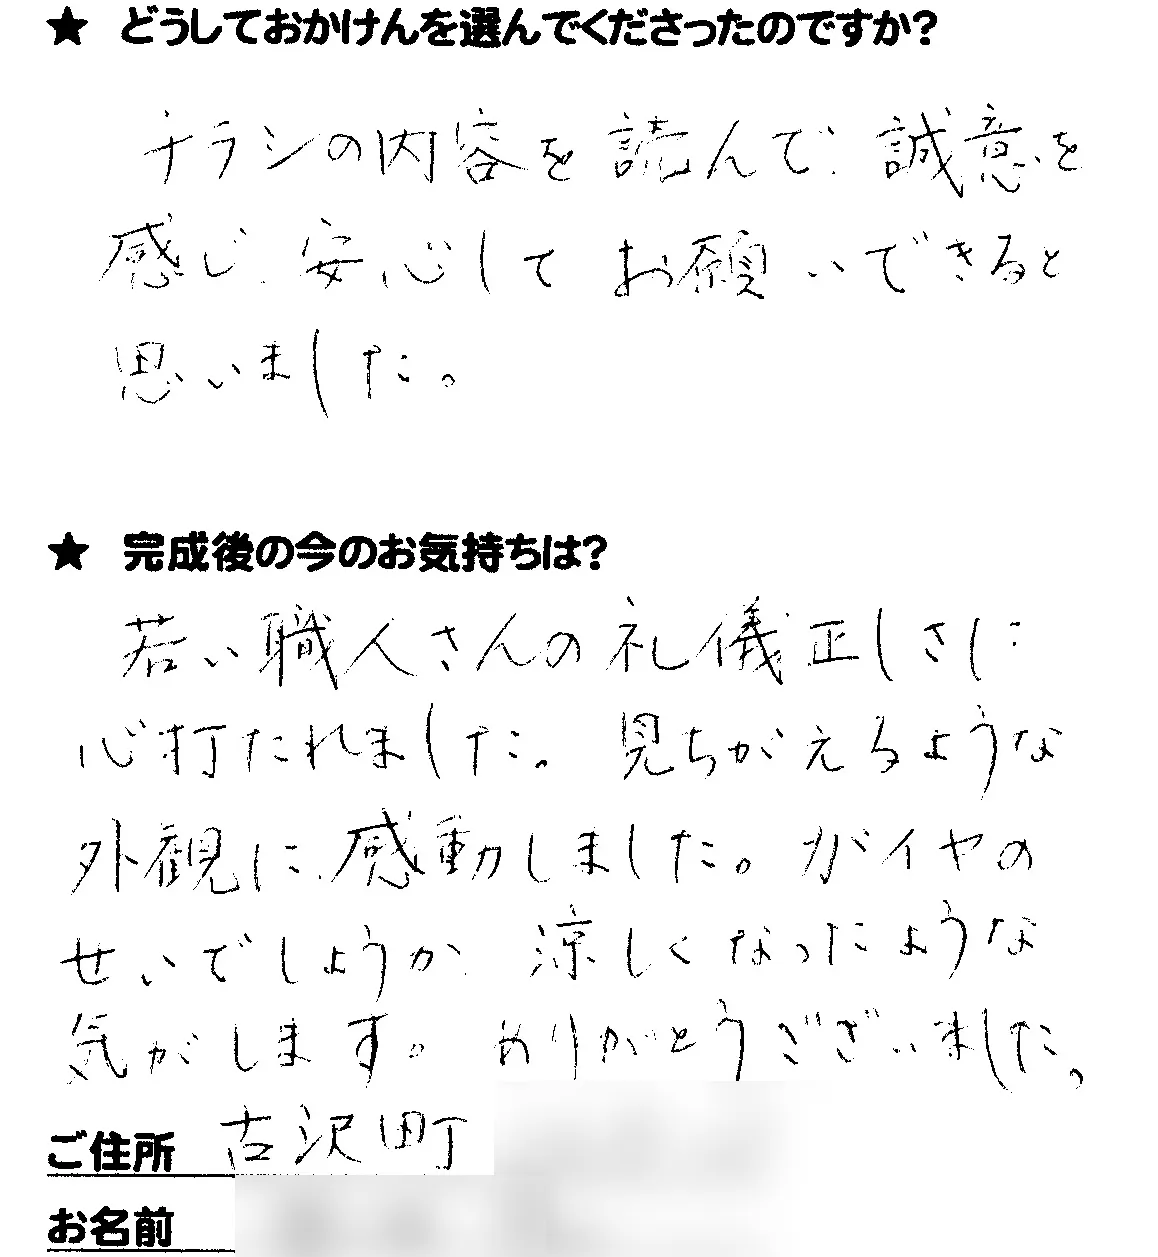 ★ どうしておかけんを選んでくださったのですか?
チラシの内容を読んで、誠意を
感じ、安心してお願いできると
思いました。
★ 完成後の今のお気持ちは?
若い職人さんの礼儀正しさに
心打たれました。見ちがえるような
外観に、感動しました。ガイヤの
せいでしょうか、涼しくなったような
気がします。ありがとうございました。
ご住所 古沢町
お名前